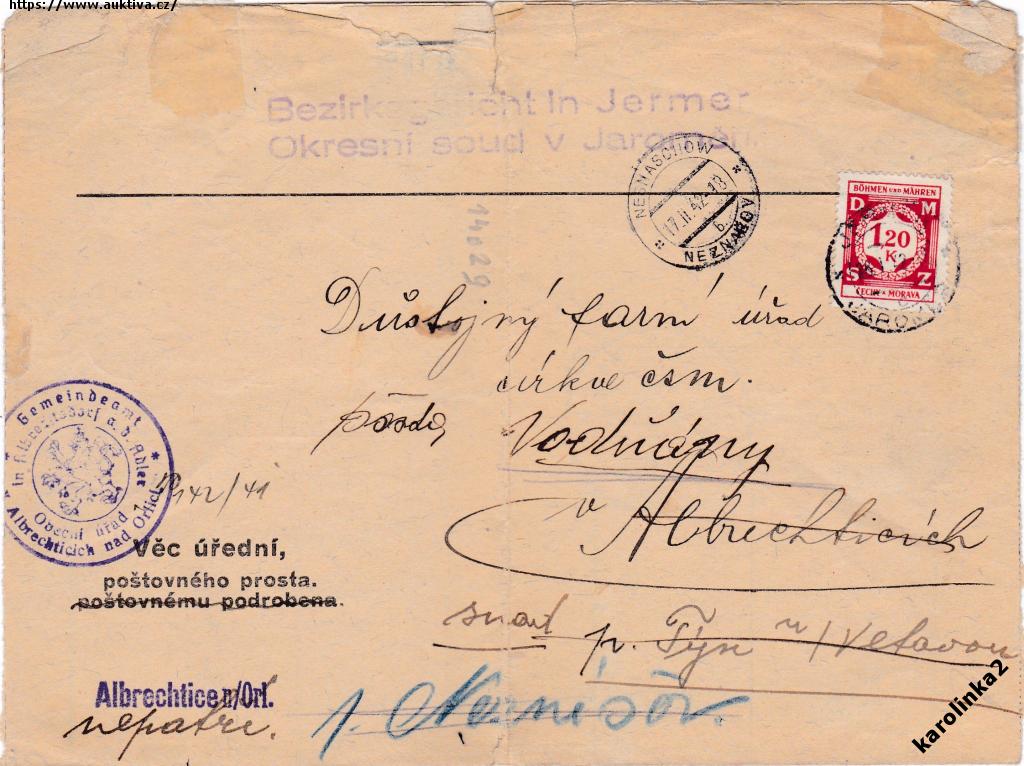 https://www.auktiva.cz/
Bezirksgericht in Jermer
Okresní soud v Jaroměři.
NEZNASCHOW
17.II.42-18
6
NEZNAŠOV
BÖHMEN UND MÄHREN
D M
1.20
K
S Z
ČECHY A MORAVA
JAROMĚŘ
14029
Důstojný farní úřad
církve čsm.
pošta Vodňány
v Albrechticích
Gemeindeamt
in Albrechtsdorf a. d. Adler
Obecní úřad
v Albrechticích nad Orlicí
142/41
Věc úřední,
poštovného prosta.
poštovnému podrobena.
snad p. Týn n/Veltavou
Albrechtice n/Orl.
nepatří.
p. Neznašov.
karolinka2